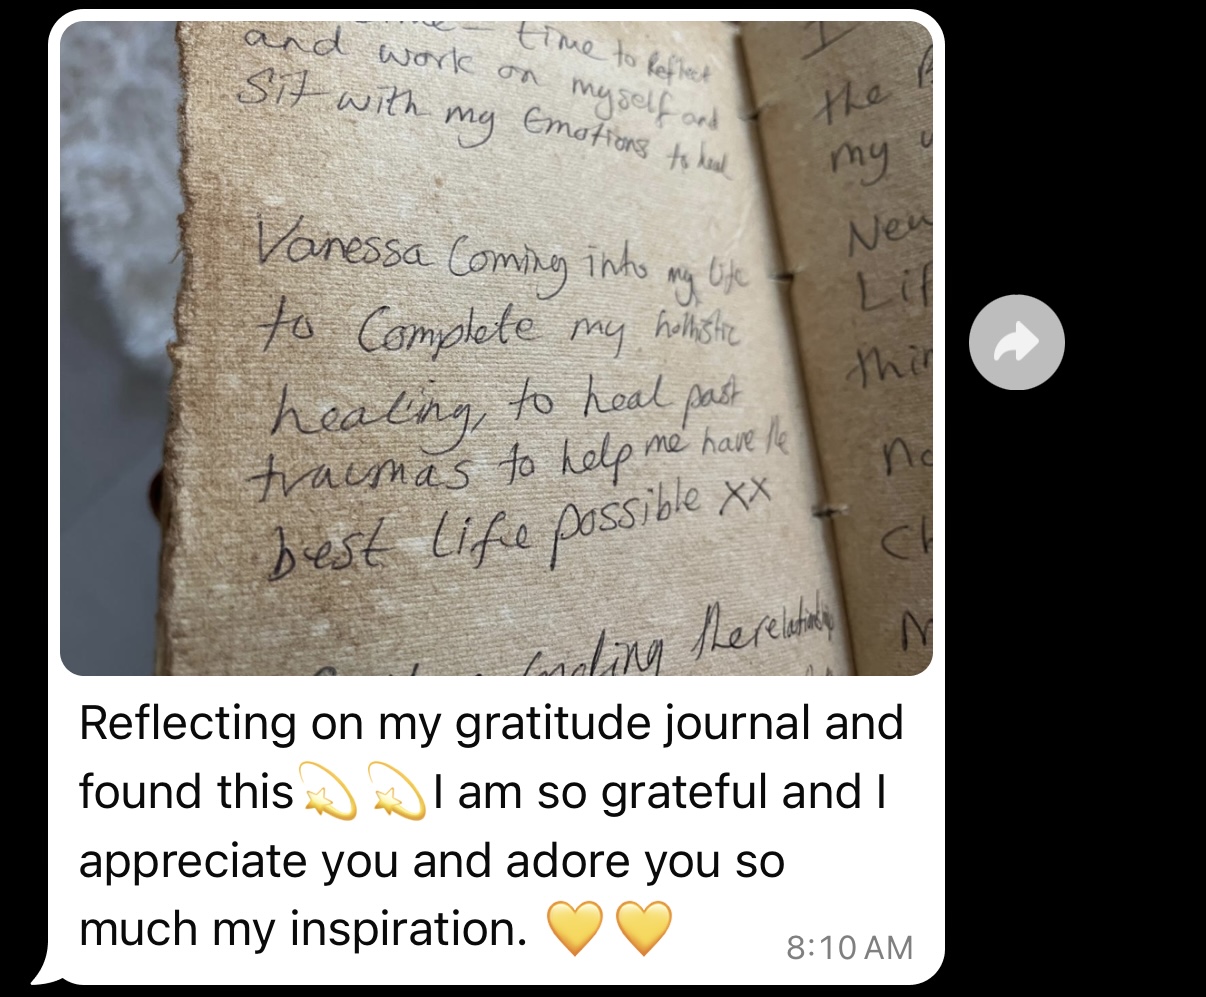 time to Reflect
and work on myself and
Sit with my Emotions to heal
Vanessa Coming into my life
to Complete my hollistic
healing, to heal past
traumas to help me have the
best life possible xx
the relationship
I
the
my
New
Lif
thin
Reflecting on my gratitude journal and
found this💫 💫I am so grateful and I
appreciate you and adore you so
much my inspiration. 💛💛
8:10 AM